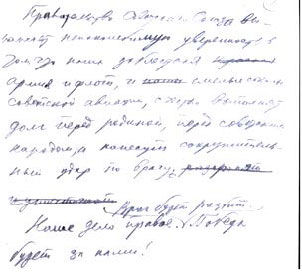 Правительство Советского Союза вы-
ражает непоколебимую уверенность в
том, что наши доблестная
армия и флот, и смелые соколы
советской авиации, с честью выполнят
долг перед родиной, перед советским
народом, и нанесут сокрушитель-
ный удар по врагу,
Враг будет разбит.
Наше дело правое. Победа
будет за нами!